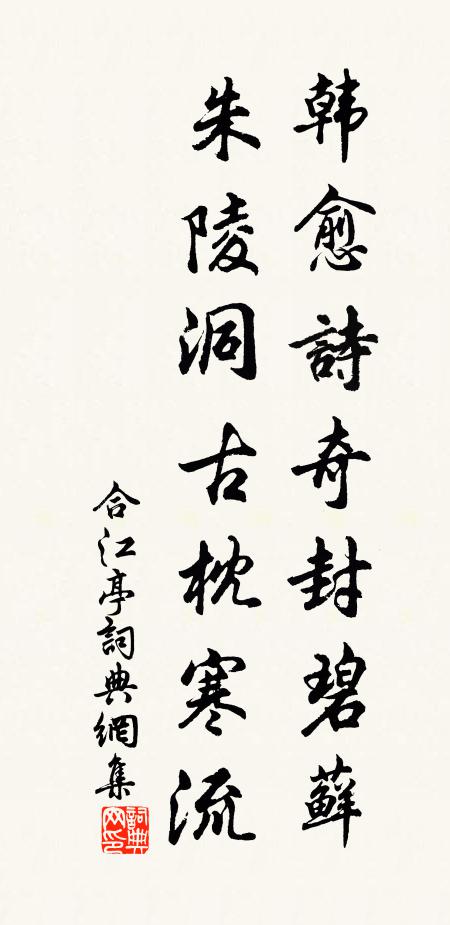 韩愈詩奇封碧蘚
朱陵洞古枕寒流
合江亭詞典網集
詞典网印